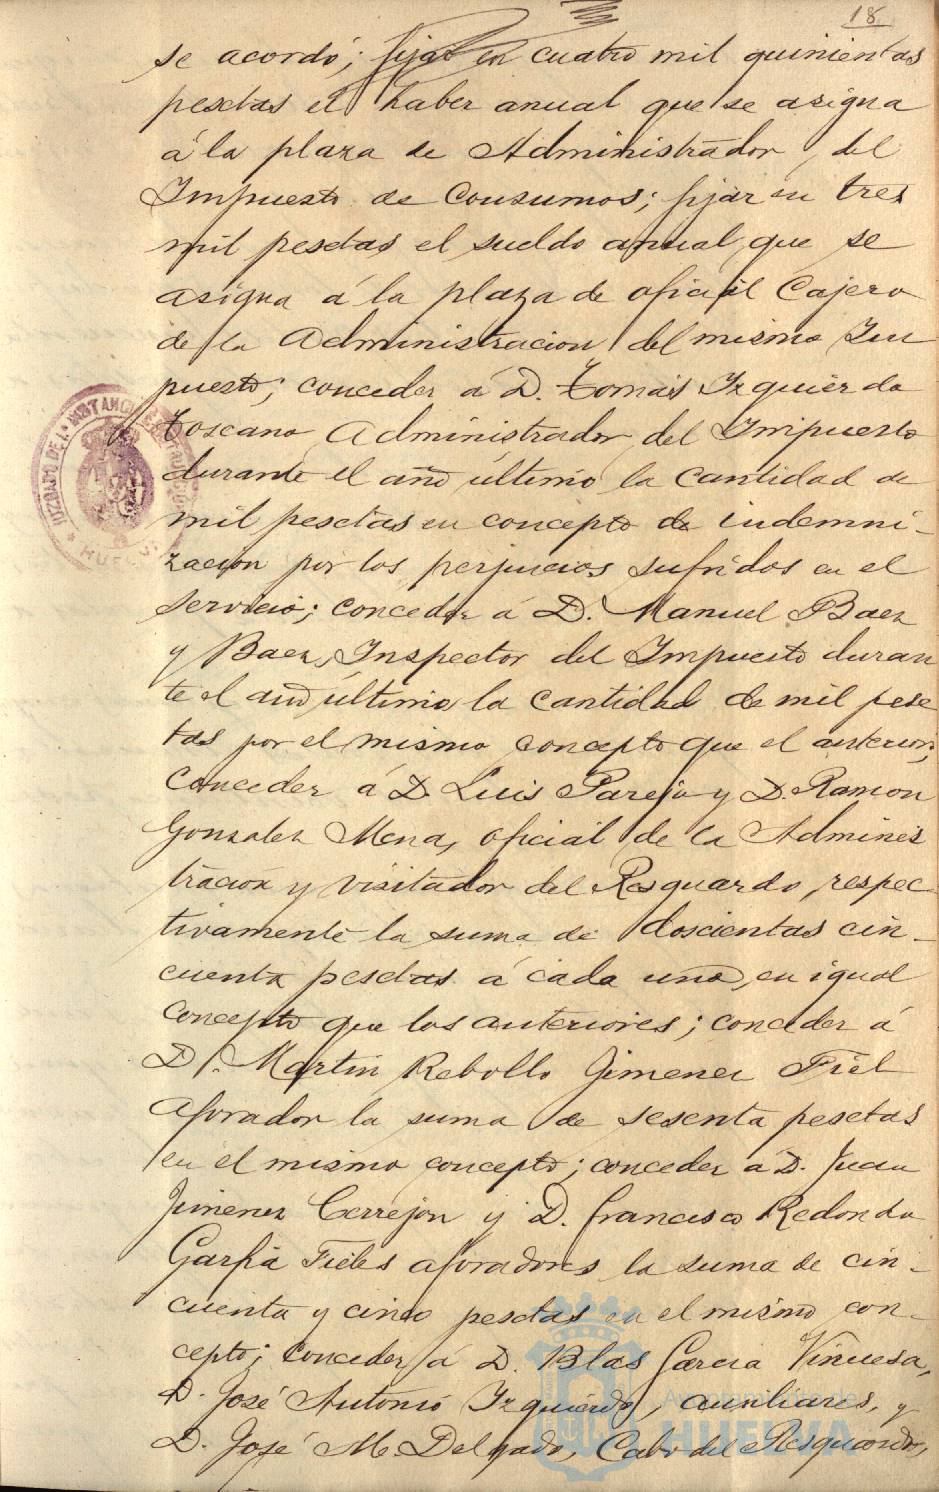 18
se acordó; fijar en cuatro mil quinientas
pesetas el haber anual que se asigna
á la plaza de Administrador, del
Impuesto de Consumos; fijar en tres
mil pesetas el sueldo anual que se
asigna á la plaza de oficial Cajero
de la Administracion del mismo Im
puesto; conceder á D. Tomás Izquierdo
Toscano Administrador del Impuesto
durante el año último la cantidad de
mil pesetas en concepto de indemni-
zacion por los perjuicios sufridos en el
servicio; conceder á D. Manuel Baez
y Baez, Inspector del Impuesto duran
te el año último la cantidad de mil pese
tas por el mismo concepto que el anterior;
conceder á D. Luis Parejo y D. Ramon
Gonzalez Mena, oficial de la Adminis
tracion y visitador del Resguardo, respec-
tivamente la suma de doscientas cin-
cuenta pesetas á cada uno, en igual
concepto que los anteriores; conceder á
D. Martin Rebollo Jimenez Fiel
aforador la suma de sesenta pesetas
en el mismo concepto; conceder á D. Juan
Jimenez Cerrejon y D. Francisco Redondo
Garfia Fieles aforadores la suma de cin-
cuenta y cinco pesetas en el mismo con-
cepto; conceder á D. Blas Garcia Vinuesa,
D. José Antonio Izquierdo, auxiliares, y
D. José M. Delgado, Cabo del Resguardo,
JUZGADO DE 1ª INSTANCIA
HUELVA
Ayuntamiento de
HUELVA